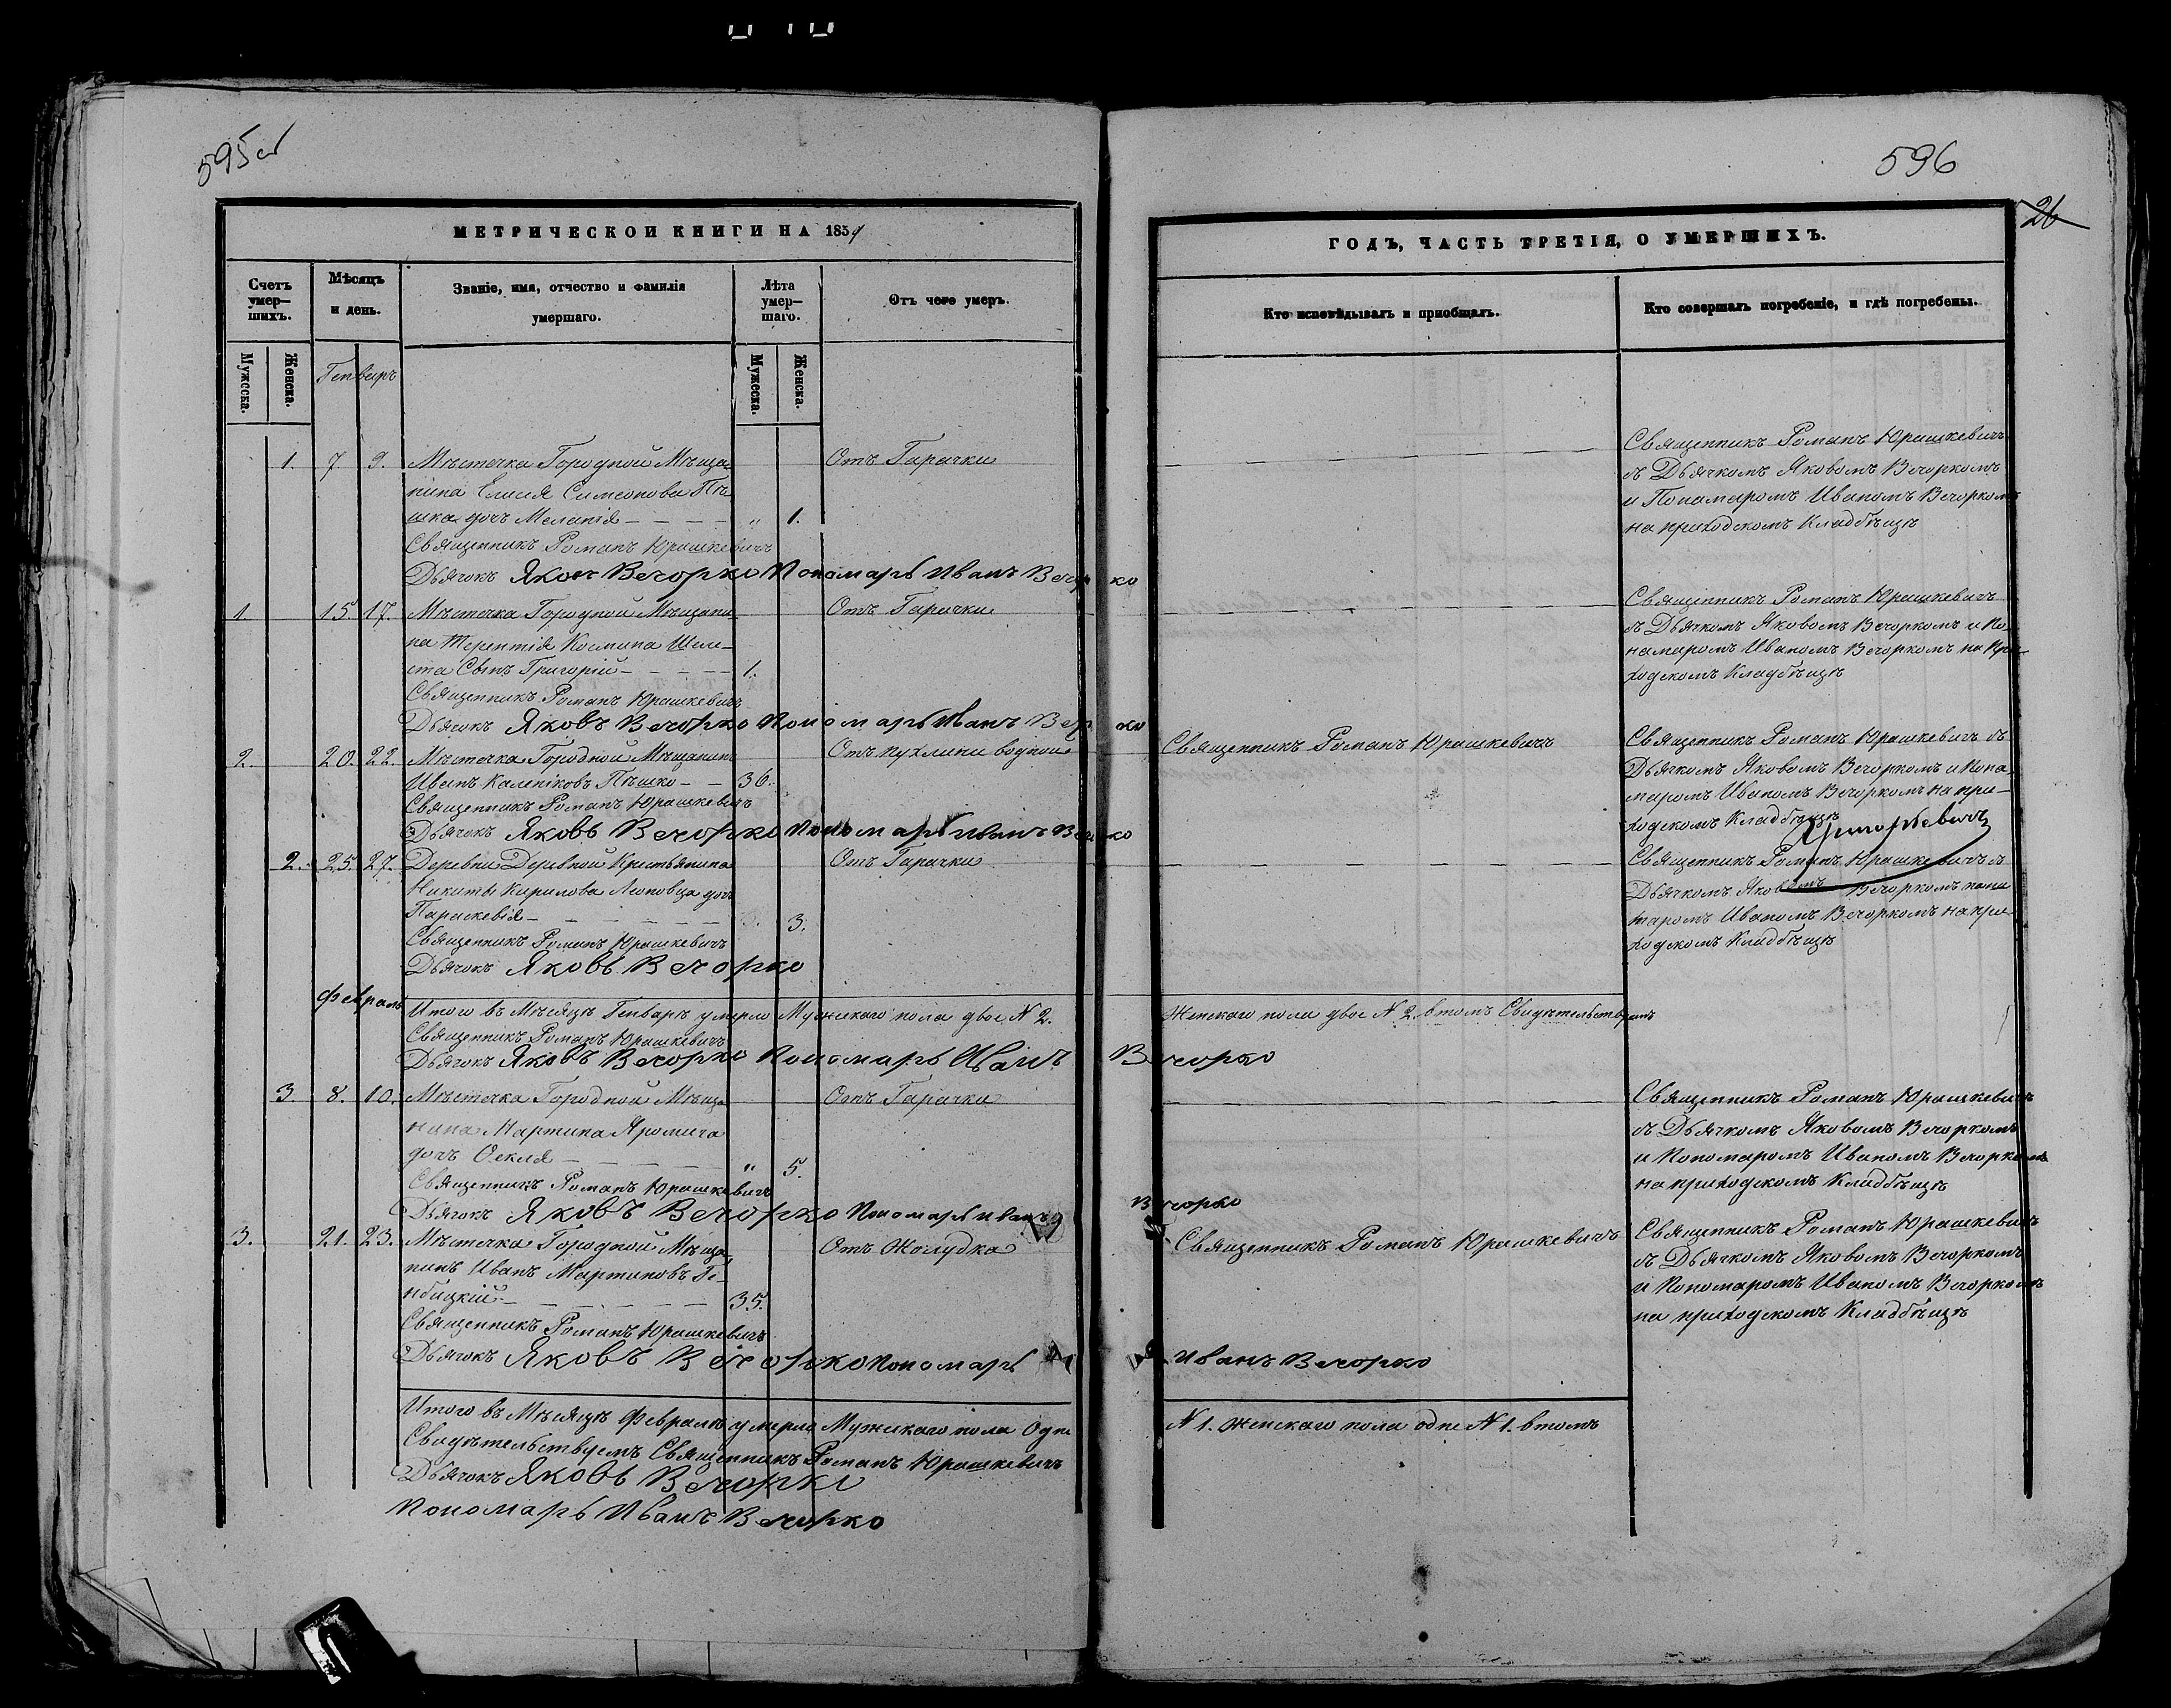 595 об
МЕТРИЧЕСКОИ КНИГИ НА 1859
Счетъ умер—шихъ.
Мѣсяцъ и день.
Званіе, имя, отчество и фамилія умершаго.
Лѣта умер—шаго.
Отъ чего умеръ.
Мужеска.
Женска.
Генваръ
Мужеска.
Женска.
1. 7. 9. Мѣстечка Городной Мѣща Отъ Гарачки
нина Елисея Симеонова Пѣ
шка дочъ Меланія — — — — „ 1.
Священникъ Романъ Юрашкевичъ
Дьячокъ Яковъ Вечорко Пономарь Иванъ Вечорко
1. 15. 17. Мѣстечка Городной Мѣщани Отъ Гарачки
на Терентія Космина Шеле—
ста Сынъ Григорій — — — — 1.
Священникъ Романъ Юрашкевичъ
Дьячокъ Яковъ Вечорко Пономарь Иванъ
2. 20. 22. Мѣстечка Городной Мѣщанинъ Отъ пухлини водной
Иванъ Калениковъ Пѣшко — — 36.
Священникъ Романъ Юрашкевичъ
Дьячокъ Яковъ Вечорко Пономарь Иванъ
2. 25. 27. Деревни Деревной Крестьянина Отъ Гарачки
Никиты Кирилова дочъ
Параскевія — — — — — 3.
Священникъ Романъ Юрашкевичъ
Дьячокъ Яковъ Вечорко
Февраль
Итого въ Мѣсяцѣ Генварѣ умерло Мужескаго пола двое N 2.
Священникъ Романъ Юрашкевичъ
Дьячокъ Яковъ Вечорко Пономарь Иванъ Вечорко
3 8. 10. Мѣстечка Городной Мѣща Отъ Гарачки
нина Мартина Яромича
дочъ Фекля — — — — — „ 5.
Священникъ Романъ Юрашкевичъ
Дьячокъ Яковъ Вечорко Пономарь Иванъ Вечорко
3. 21. 23. Мѣстечка Городной Мѣща Отъ Жолудка
нинъ Иванъ Мартиновъ Ге—
нбицкій — — — — — 35.
Священникъ Романъ Юрашкевичъ
Дьячокъ Яковъ Вечорко Пономарь Иванъ Вечорко
Итого въ Мѣсяцѣ Февралѣ умерло Мужескаго пола Одн
Свидѣтельствуемъ Священникъ Романъ Юрашкевичъ
Дьячокъ Яковъ Вечорко
Пономарь Иванъ Вечорко
596
26
ГОДЪ, ЧАСТЬ ТРЕТІЯ, О УМЕРШИХЪ.
Кто исповѣдывалъ и пріобщалъ.
Кто совершалъ погребеніе, и гдѣ погребены.
Священникъ Романъ Юрашкевичъ
съ Дьячкомъ Яковомъ Вечоркомъ
и Понамаромъ Иваномъ Вечоркомъ
на приходскомъ Кладбѣщѣ
Священникъ Романъ Юрашкевичъ
съ Дьячкомъ Яковомъ Вечоркомъ и По
намаромъ Иваномъ Вечоркомъ на При
ходскомъ Кладбѣщѣ
Священникъ Романъ Юрашкевичъ
Священникъ Романъ Юрашкевичъ съ
Дьячкомъ Яковомъ Вечоркомъ и Пона
маромъ Иваномъ Вечоркомъ на при—
ходскомъ Кладбѣщѣ
Священникъ Романъ Юрашкевичъ съ
Дьячкомъ Яковомъ Вечоркомъ
маромъ Иваномъ Вечоркомъ на при
ходскомъ Кладбѣщѣ
Женскаго пола двое N 2. втомъ Свидѣтельствуемъ
Священникъ Романъ Юрашкевичъ
съ Дьячкомъ Яковомъ Вечоркомъ
и Пономаромъ Иваномъ Вечоркомъ
на приходскомъ Кладбѣщѣ
Священникъ Романъ Юрашкевичъ
Священникъ Романъ Юрашкевичъ
съ Дьячкомъ Яковомъ Вечоркомъ
и Пономаромъ Иваномъ Вечоркомъ
на приходскомъ Кладбѣщѣ
N 1. женскаго пола одне N 1. втомъ